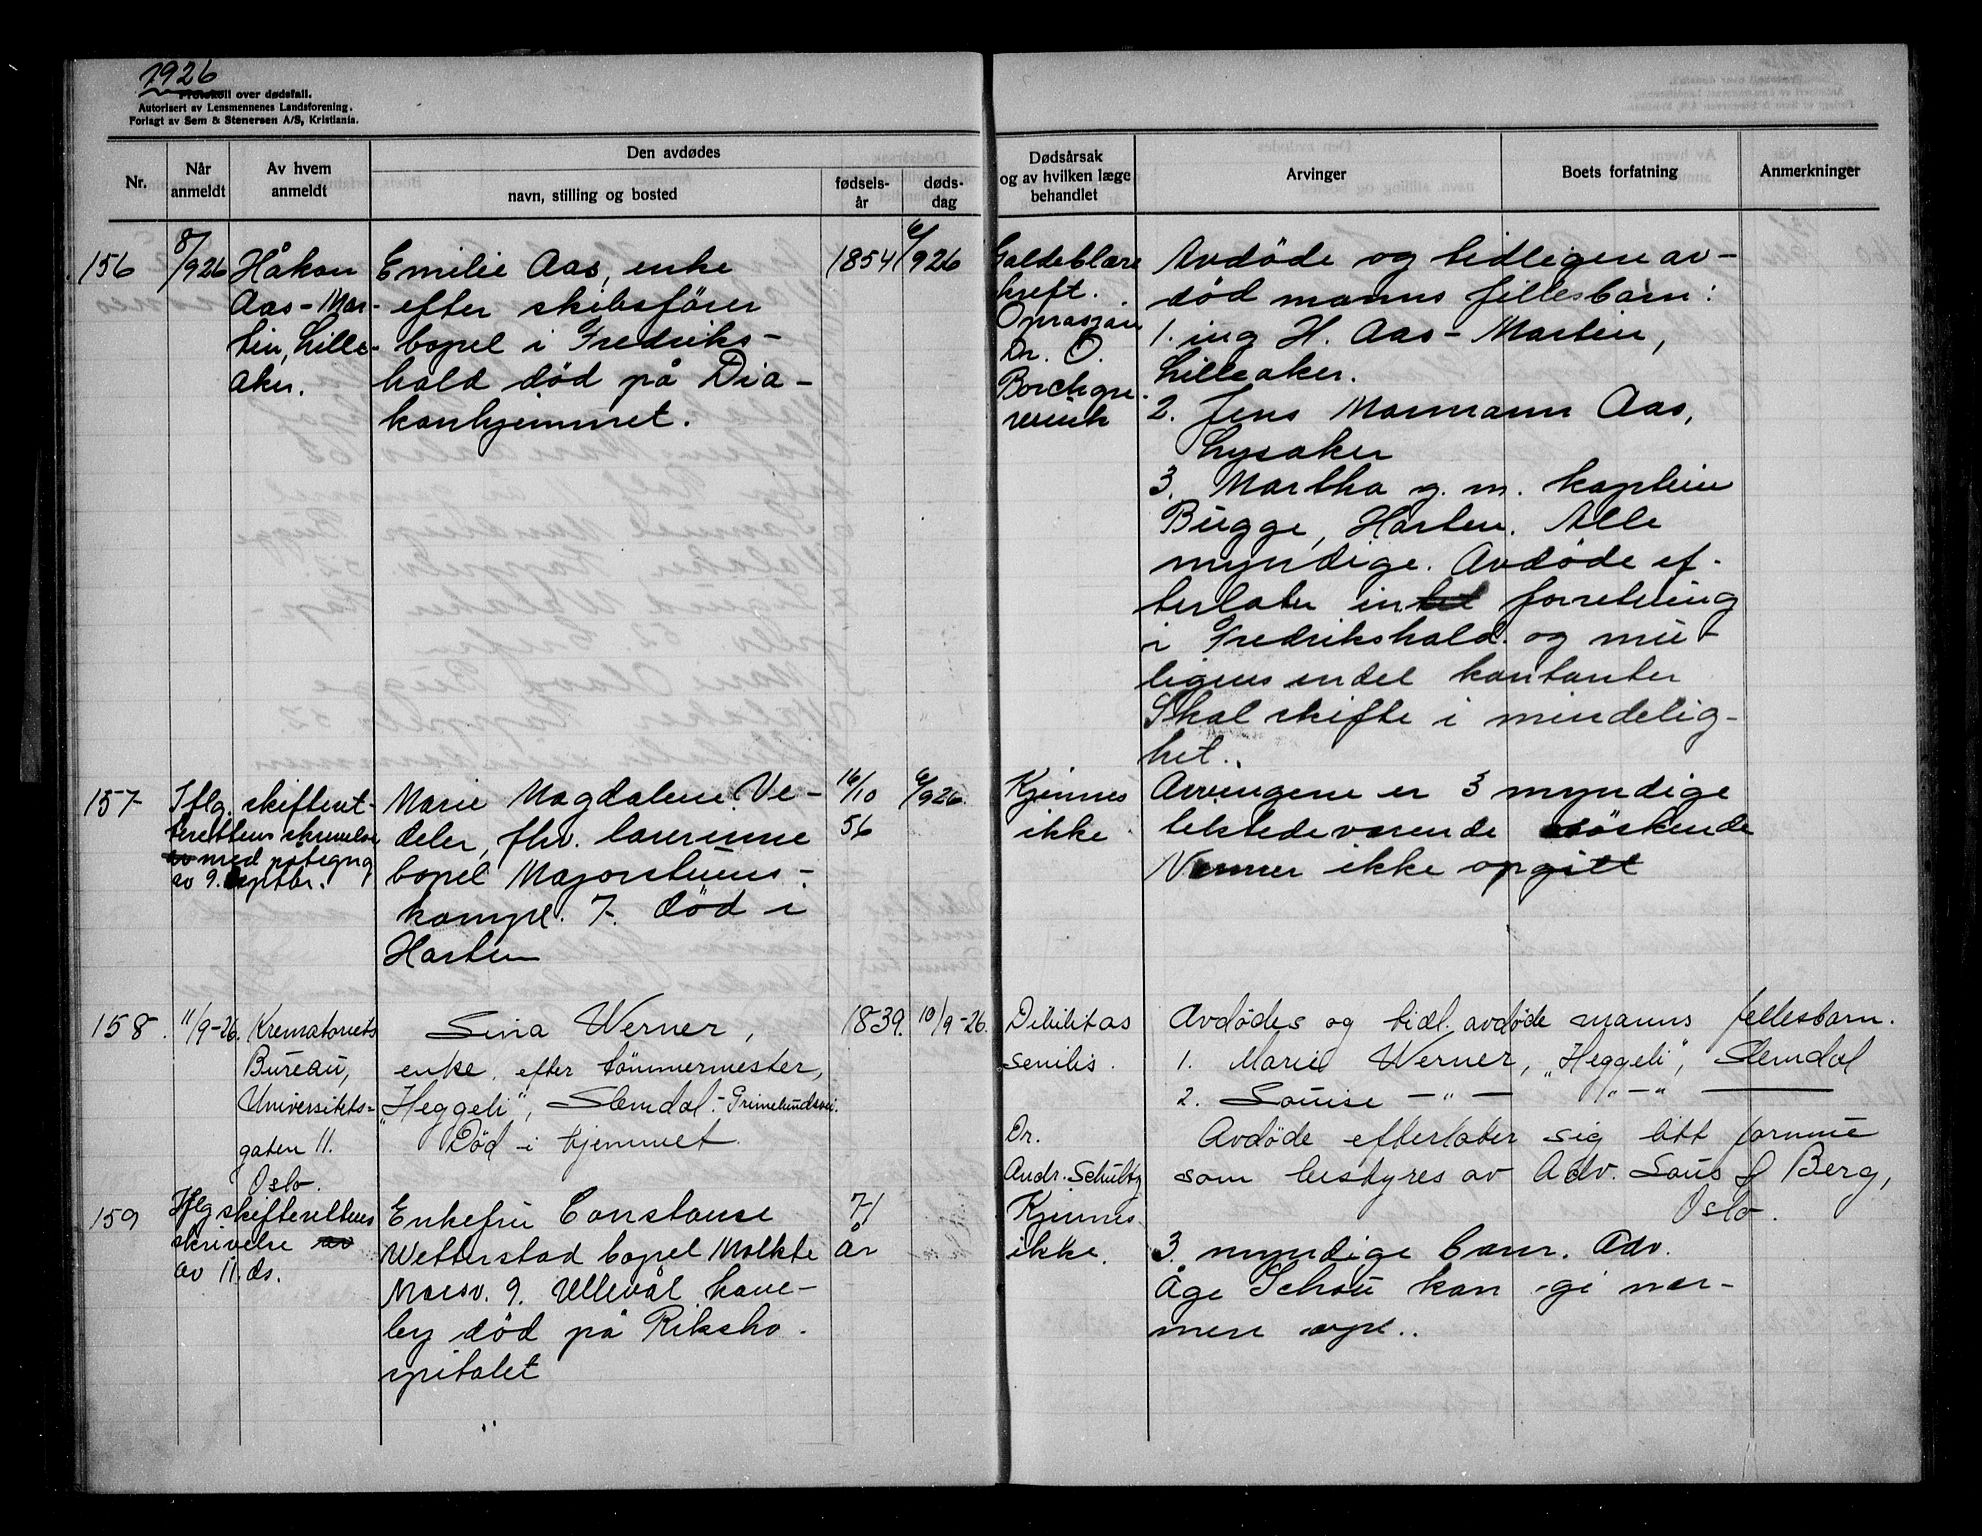 1926
Protokoll over dødsfall.
Autorisert av Lensmennenes Landsforening.
Forlagt av Sem & Stenersen A/S, Kristiania.
Nr.
Når
anmeldt
Av hvem
anmeldt
Den avdødes
navn, stilling og bosted
fødsels-
år
døds-
dag
Dødsårsak
og av hvilken læge
behandlet
Arvinger
Boets forfatning
Anmerkninger
156
8/926
Håkon
Aas-Mar-
tin, Lille-
aker.
Emilie Aas, enke
efter skibsfører
bopel i Fredriks-
hald død på Dia-
konhjemmet.
1854
6/926
Galdeblære
kreft.
Oprasjon
Dr. O.
Borchgre
vink
Avdøde og tidligere av-
død manns fellesbarn:
1. ing H. Aas-Martin,
Lilleaker.
2. Jens Mormann Aas,
Lysaker
3. Martha g. m. kaptein
Bugge, Horten. Alle
myndige. Avdøde ef-
terlater forretning
i Fredrikshald og mu-
ligens endel kontanter
Skal skifte i mindelig-
het.
157
Iflg. skifteret-
terettens skrivelse
av med potegng
av 9. septbr.
Marie Magdalene Ve-
deler, fhv. lærerinne
bopel Majorstuens-
kompl. 7. død i
Horten
16/10
56
6/926.
Kjennes
ikke
Arvingene er 3 myndige
tilstedeværende søskende
Navner ikke opgitt
158.
11/9-26.
Krematoriets
Bureau,
Universitets-
gaten 11.
Oslo.
Sina Werner,
enke efter tømmermester,
"Heggeli", Slemdal.- Grimelundsvei.
Død i hjemmet.
1839.
10/9-26.
Debilitas
senilis.
Dr.
Andr. Schultz
Avdødes og tidl. avdøde manns fellesbarn.
1. Marie Werner, "Heggeli", Slemdal
2. Louise -"- "-"
Avdøde efterlater sig litt formue
som bestyres av Adv. Berg,
Oslo.
159
Iflg skifterettens
skrivelse av
av 11. ds.
Enkefru Constanse
Wetterstad bopel Moltke
Moesv. 9. Ullevål have-
by død på Riksho-
spitalet
71
år
Kjennes
ikke.
3 myndige barn. Adv.
Åge Schou kan gi nær-
mere opl..